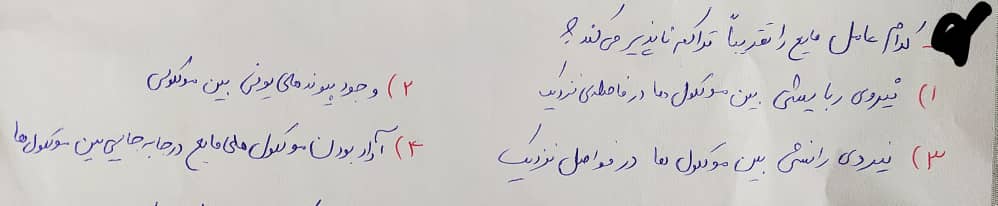 کدام عامل مایع را تقریباً تراکم ناپذیر می‌کند؟
۱) نیروی ربایشی بین مولکول ها در فاصله‌ی نزدیک
۲) وجود پیوندهای یونی بین مولکولی
۳) نیروی رانشی بین مولکول ها در فواصل نزدیک
۴) آزاد بودن مولکول های مایع در جابه جایی بین مولکول‌ها